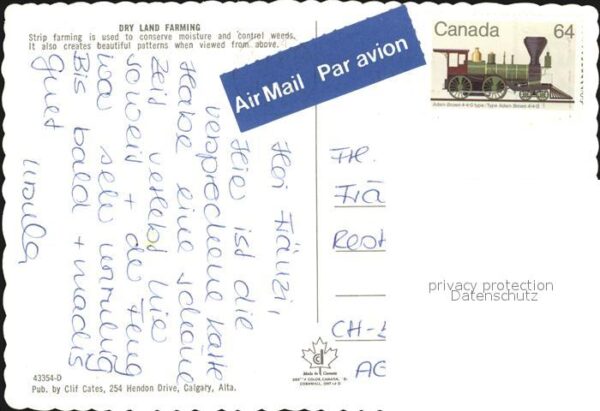 DRY LAND FARMING
Strip farming is used to conserve moisture and control weeds.
It also creates beautiful patterns when viewed from above.
Air Mail Par avion
Canada 64
Adam Brown 4-4-0 type/Type Adam Brown 4-4-0
Hoi Fränzi,
Hie ist die
versprochene Karte
Habe eine schöne
Zeit verlebt hie
soweit + de
isch sehr
Bis bald + machs
guet
Ursula
Frl.
Frä
Rest
CH-
AG
privacy protection
Datenschutz
Made in Canada
43354-D
Pub. by Clif Cates, 254 Hendon Drive, Calgary, Alta.